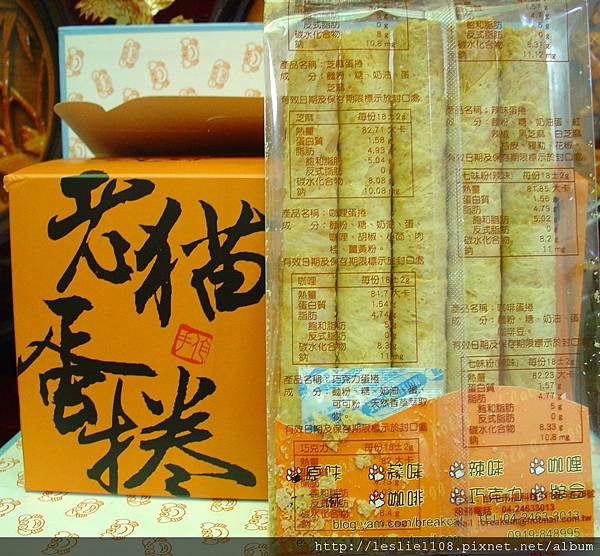 老貓
蛋捲
手作
飽和脂肪
反式脂肪 0 g
碳水化合物 8 g
鈉 10.8 mg
產品名稱：芝麻蛋捲
成 分：麵粉、糖、奶油、蛋
芝麻
有效日期及保存期限標示於封口處
芝麻 每份18±2g
熱量 82.71 大卡
蛋白質 1.58 g
脂肪 4.93 g
飽和脂肪 5.04 g
反式脂肪 0 g
碳水化合物 8.08 g
鈉 10.08 mg
產品名稱：咖哩蛋捲
成 分：麵粉、糖、奶油、蛋、
咖哩、胡椒、小茴、肉
桂、薑黃粉。
有效日期及保存期限標示於封口處
咖哩 每份18±2g
熱量 81.7 大卡
蛋白質 1.54 g
脂肪 4.74 g
飽和脂肪 5 g
反式脂肪 0 g
碳水化合物 8.3
鈉 11 mg
產品名稱：巧克力蛋捲
成 分：麵粉、糖、奶油、蛋、
可可粉、天然香草萃取
物。
有效日期及保存期限標示於封口處
巧克力 每份18±2g
飽和脂肪
反式脂肪
碳水化合物 8.31
鈉 11.12 mg
產品名稱：辣味蛋捲
成 分：麵粉、糖、奶油、蛋、紅
辣椒、黑芝麻、白芝麻
有效日期及保存期限標示於封口處
七味粉(辣味) 每份18±2g
熱量 81.85 大卡
蛋白質 1.56 g
脂肪 4.79 g
飽和脂肪 5.02 g
反式脂肪 0 g
碳水化合物 8.2 g
鈉 11 mg
產品名稱：咖啡蛋捲
成 分：麵粉、糖、奶油、蛋
咖啡豆。
有效日期及保存期限標示於封口處
七味粉(辣味) 每份18±2g
熱量 82.23 大卡
蛋白質 1.57 g
脂肪 4.77 g
飽和脂肪 5 g
反式脂肪 0 g
碳水化合物 8.33 g
鈉 10.8 mg
原味 蒜味 辣味 咖哩
咖啡 巧克力 綜合
04-24633013
0919-848995
http://leslie1108.pixnet.net/album